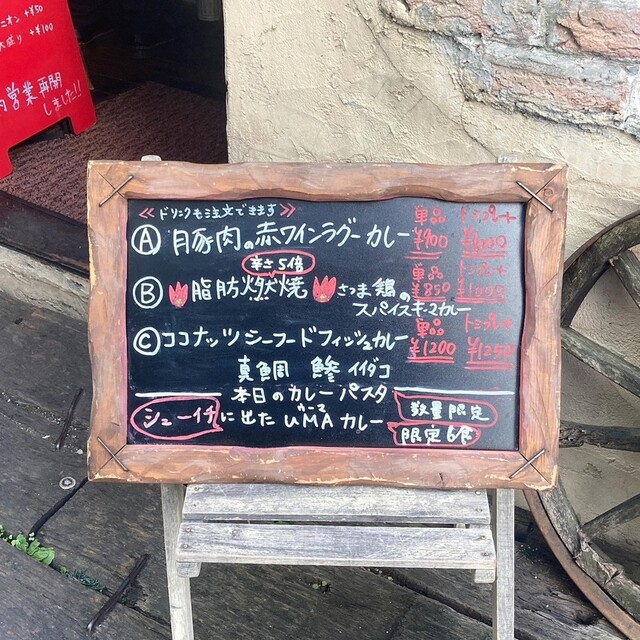 ニオン +¥50
大盛り +¥100
内営業再開
しました!!
≪ドリンクも注文できます≫
Ⓐ 豚肉の赤ワインラグーカレー
単品 ¥900
辛さ5倍
Ⓑ 脂肪燃焼 さつま鶏の
スパイスキーマカレー
単品 ¥850
Ⓒ ココナッツシーフードフィッシュカレー
単品 ¥1200 ¥1250
真鯛 鯵 イイダコ
本日のカレーパスタ
数量限定
シューイチに出たUMAカレー
限定6食